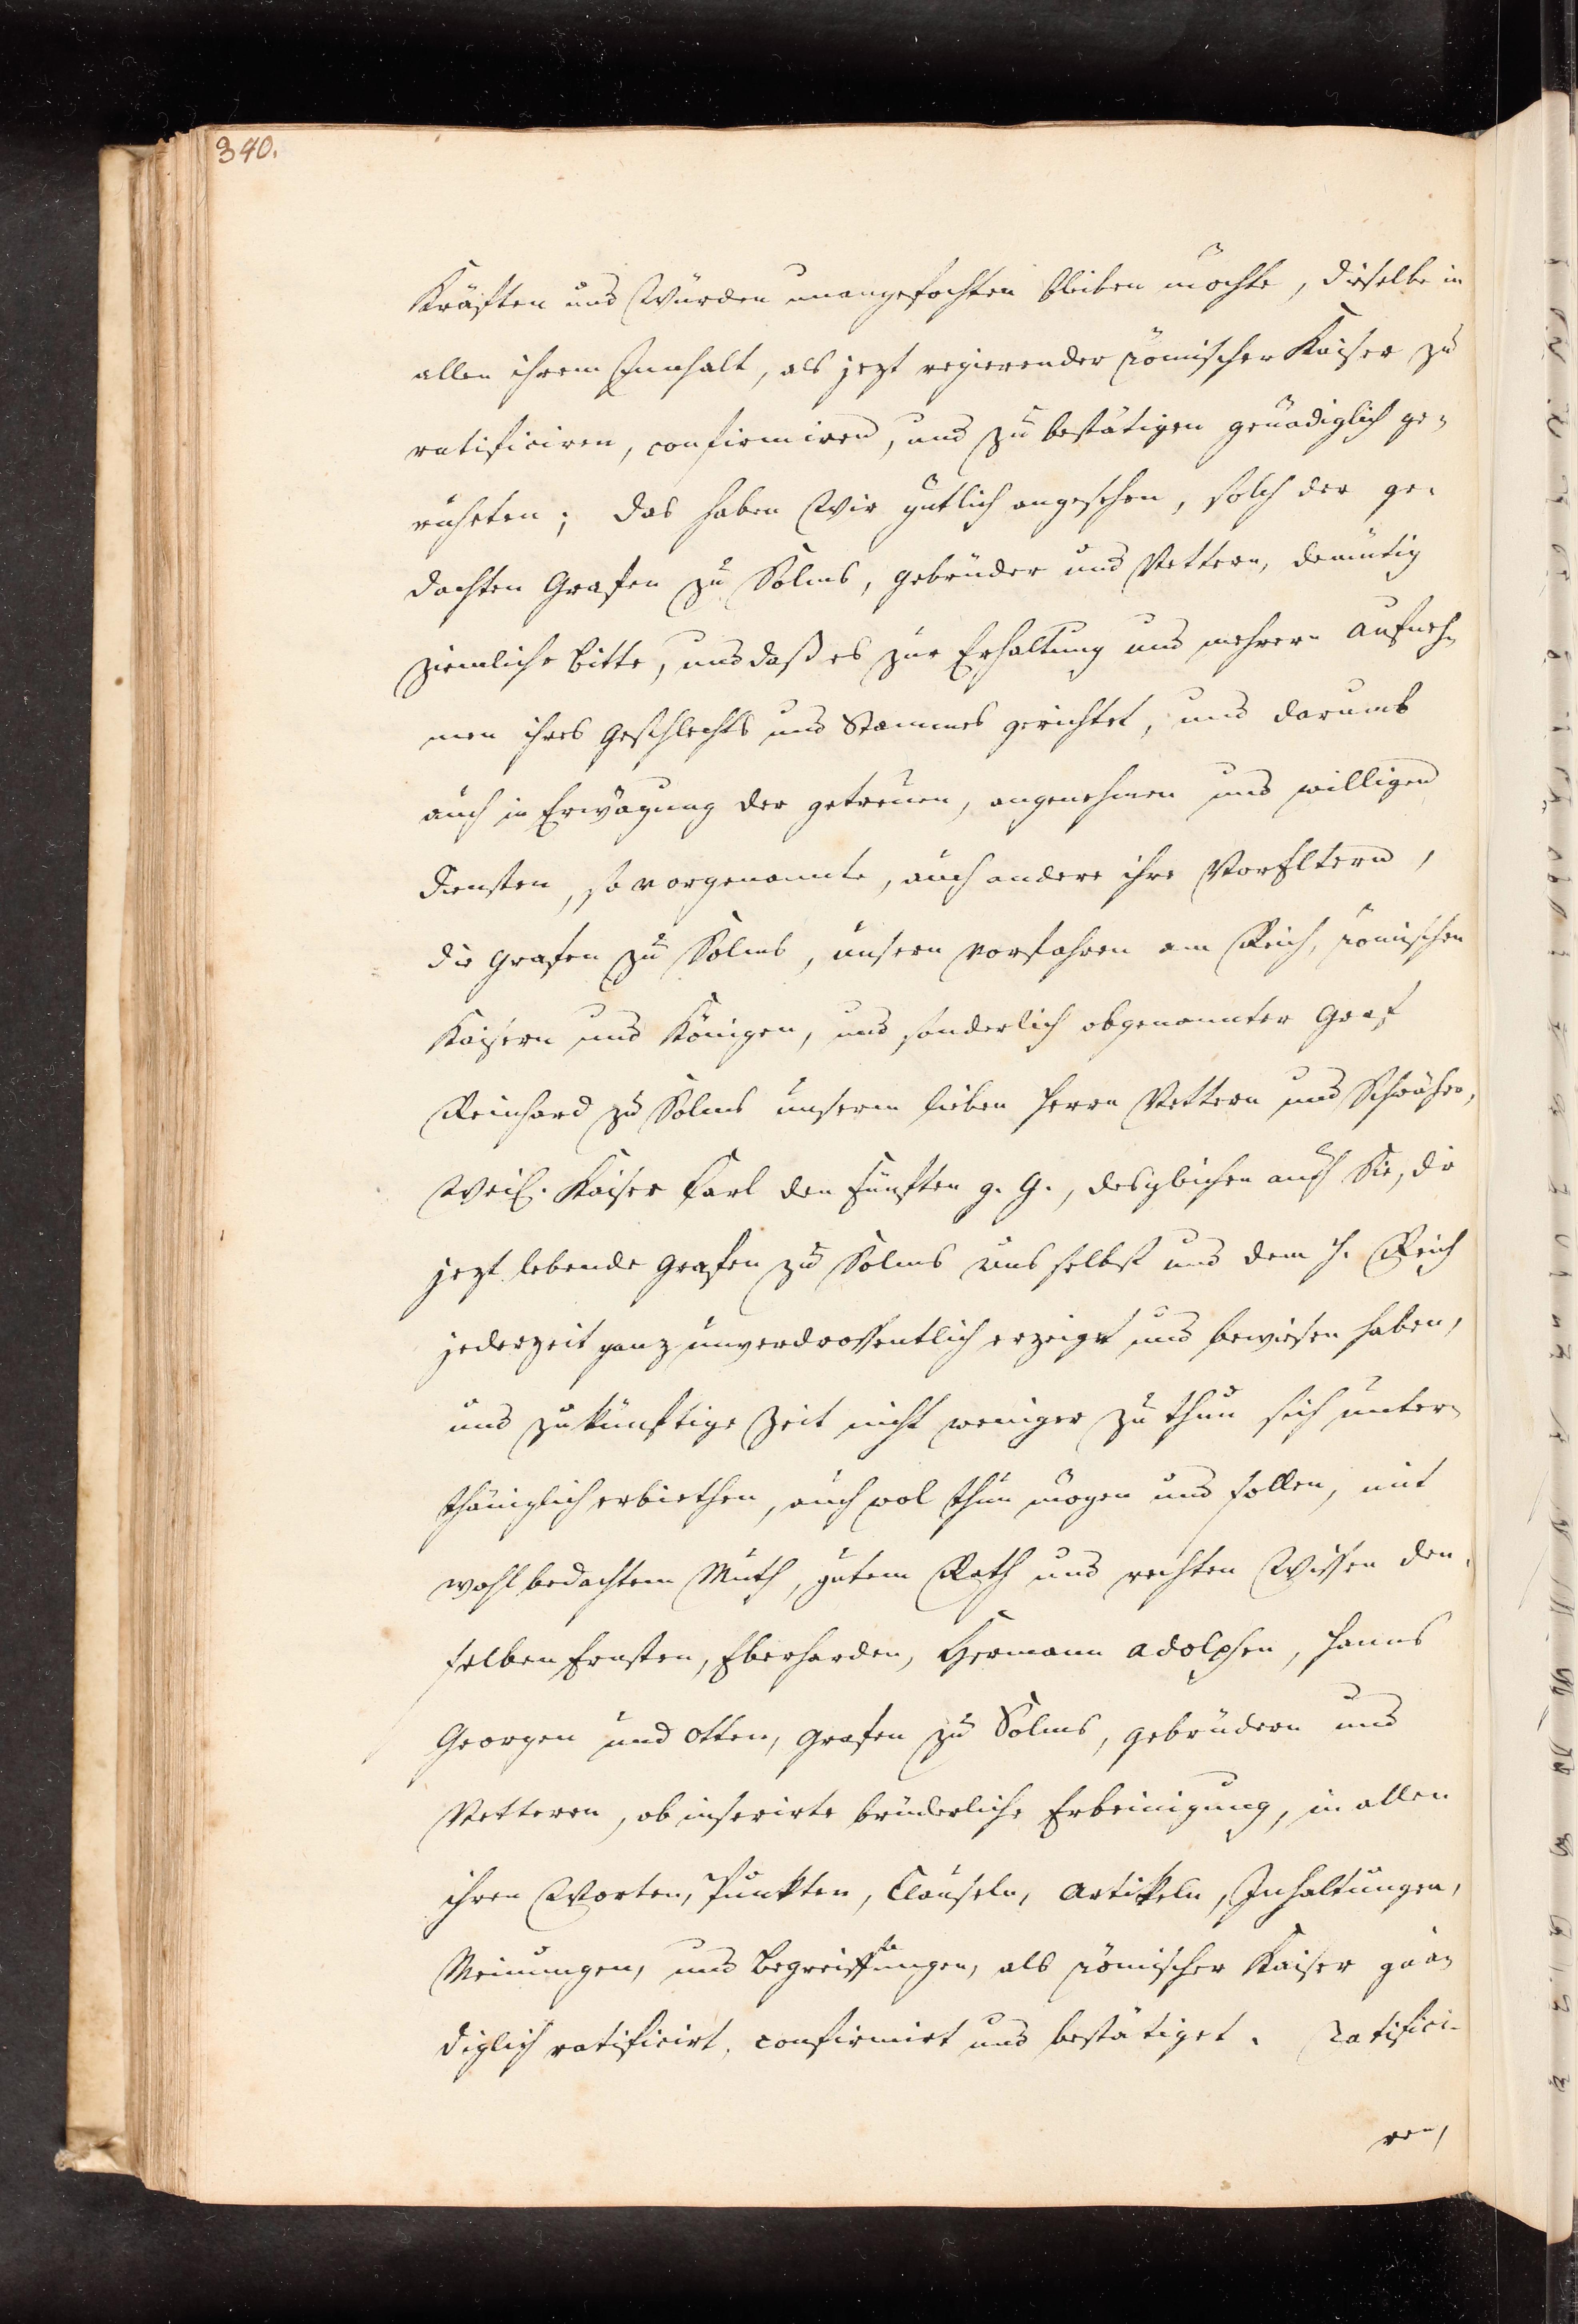 340.
Kräften und Würden unangefochten bleiben möchte, dieselbe in
allen ihrem Innhalt, als jezt regierender römischer Kaiser zu
ratificiren, confirmiren, und zu bestätigen genädiglich ge-
ruheten; das haben Wir gütlich angesehen, solch der ge-
dachten Grafen zu Solms, gebrüder und Vettern, demütig
ziemliche bitte, und daß es zur Erhaltung und mehrern aufneh-
men ihres Geschlechts und Stammes gerichtet, und darumb
auch in Erwägung der getreuen, angenehmen und willigen
Diensten, so vorgenannte, auch andere ihre VorEltern,
die Grafen zu Solms, unsern vorfahren am Reich, römischen
Kaisern und Königen, und sonderlich obgenannter Graf
Reinhard zu Solms unserm lieben Herrn Vettern und Schwäher,
Weil. Kaiser Carl den Fünften g. G., desgleichen auch Sie, die
jezt lebende Grafen zu Solms uns selbst und dem H. Reich
jederzeit ganz unverdrossentlich erzeigt und bewiesen haben,
und zukünftige Zeit nicht weniger zu thun sich unter-
thäniglich erbiethen, auch wol thun mögen und sollen, mit
wohl bedachtem Muth, gutem Rath und rechten Wissen den-
selben Ernsten, Eberharden, Hermann Adolphen, Hanns
Georgen und Otten, Grafen zu Solms, gebrüdern und
Vetteren, ob inserirte brüderliche Erbeinigung, in allen
ihren Worten, Punkten, Clauseln, Artikeln, Inhaltungen,
Meinungen, und Begreiffungen, als römischer Kaiser gnä-
diglich ratificirt, confirmirt und bestätiget. Ratifici-
ren,